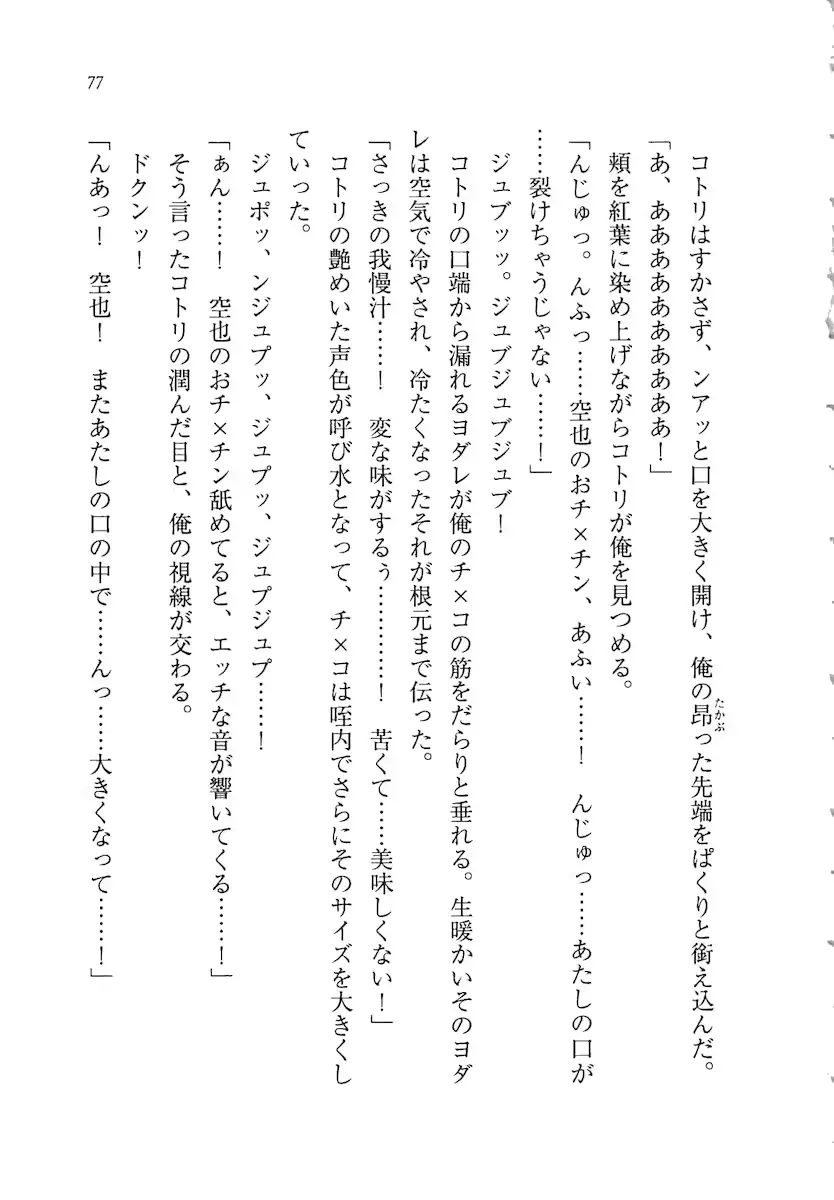 77
コトリはすかさず、ンアッと口を大きく開け、俺の昂った先端をぱくりと銜え込んだ。
たかぶ
「あ、ああああああああああ！」
頬を紅葉に染め上げながらコトリが俺を見つめる。
「んじゅっ。んふっ……空也のおチ×チン、あふい……！　んじゅっ……あたしの口が
……裂けちゃうじゃない……！」
ジュブッッ。ジュブジュブジュブ！
コトリの口端から漏れるヨダレが俺のチ×コの筋をだらりと垂れる。生暖かいそのヨダ
レは空気で冷やされ、冷たくなったそれが根元まで伝った。
「さっきの我慢汁……！　変な味がするぅ…………！　苦くて……美味しくない！」
コトリの艶めいた声色が呼び水となって、チ×コは咥内でさらにそのサイズを大きくし
ていった。
ジュポッ、ンジュプッ、ジュプッ、ジュプジュプ……！
「ぁん……！　空也のおチ×チン舐めてると、エッチな音が響いてくる……！」
そう言ったコトリの潤んだ目と、俺の視線が交わる。
ドクンッ！
「んあっ！　空也！　またあたしの口の中で……んっ……大きくなって……！」